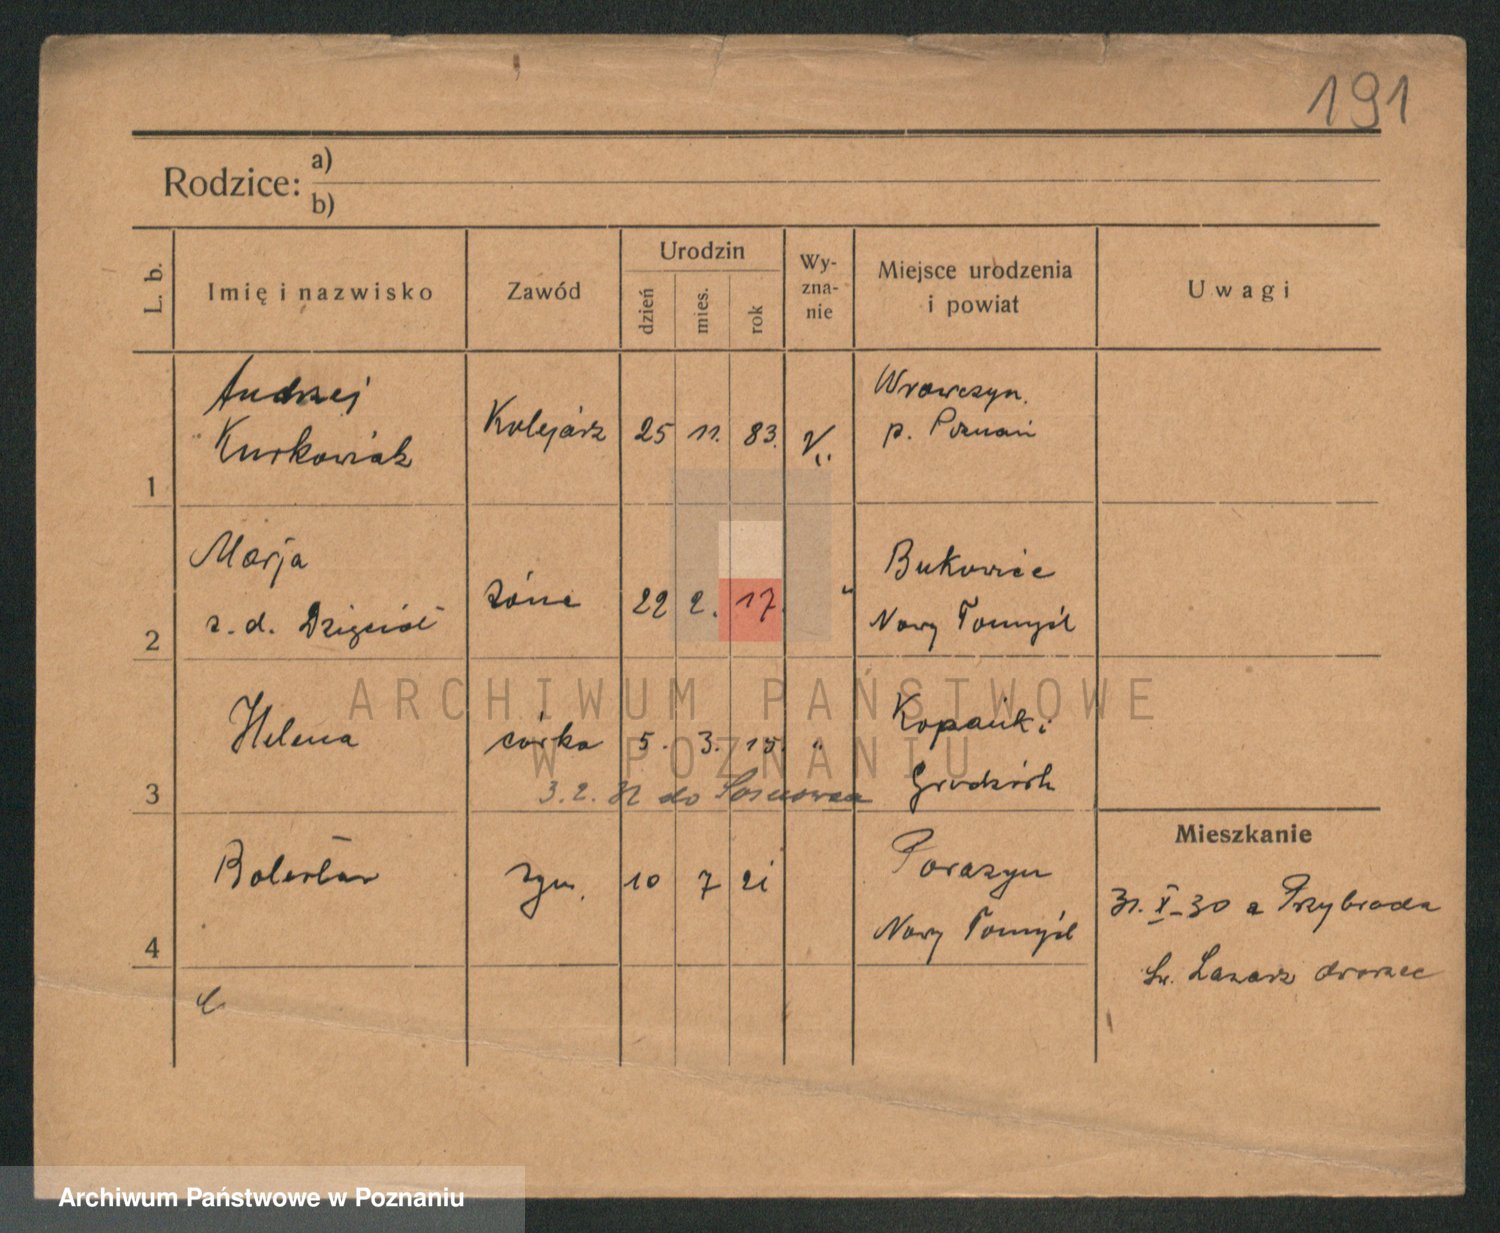 191
Rodzice: a)
b)
L. b.
Imię i nazwisko
Zawód
Urodzin
dzień
mies.
rok
Wy-
zna-
nie
Miejsce urodzenia
i powiat
Uwagi
1
Andrzej
Kurkowiak
Kolejarz
25 11. 83.
Wrowczyn.
p. Poznań
2
Marja
z. d.
żona
22 2. 17.
"
Bukowiec
Nowy Tomyśl
3
Helena
córka
5. 3. 15.
"
Kopanki
Grodzisk
3. 2. 32 do Sosnowca
4
Bolesław
syn.
10 7 21
Porazyn
Nowy Tomyśl
Mieszkanie
31. X-30 z Przybroda
Św. Łazarz dworzec
ARCHIWUM PAŃSTWOWE
W POZNANIU
Archiwum Państwowe w Poznaniu